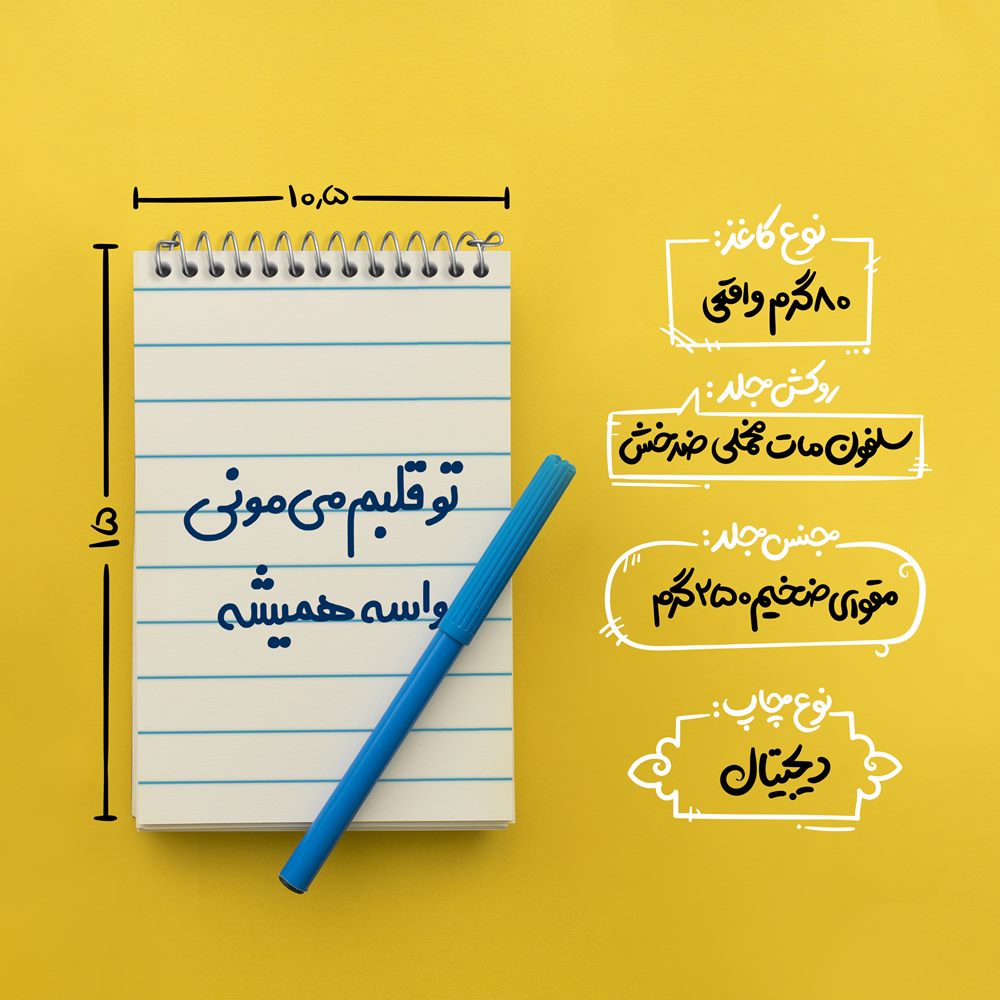 ۱۰,۵
۱۵
تو قلبم می‌مونی
واسه همیشه
نوع کاغذ:
۸۰گرم واقعی
روکش جلد:
سلفون مات مخملی ضدخش
جنس جلد:
مقوای ضخیم ۲۵۰گرم
نوع چاپ:
دیجیتال